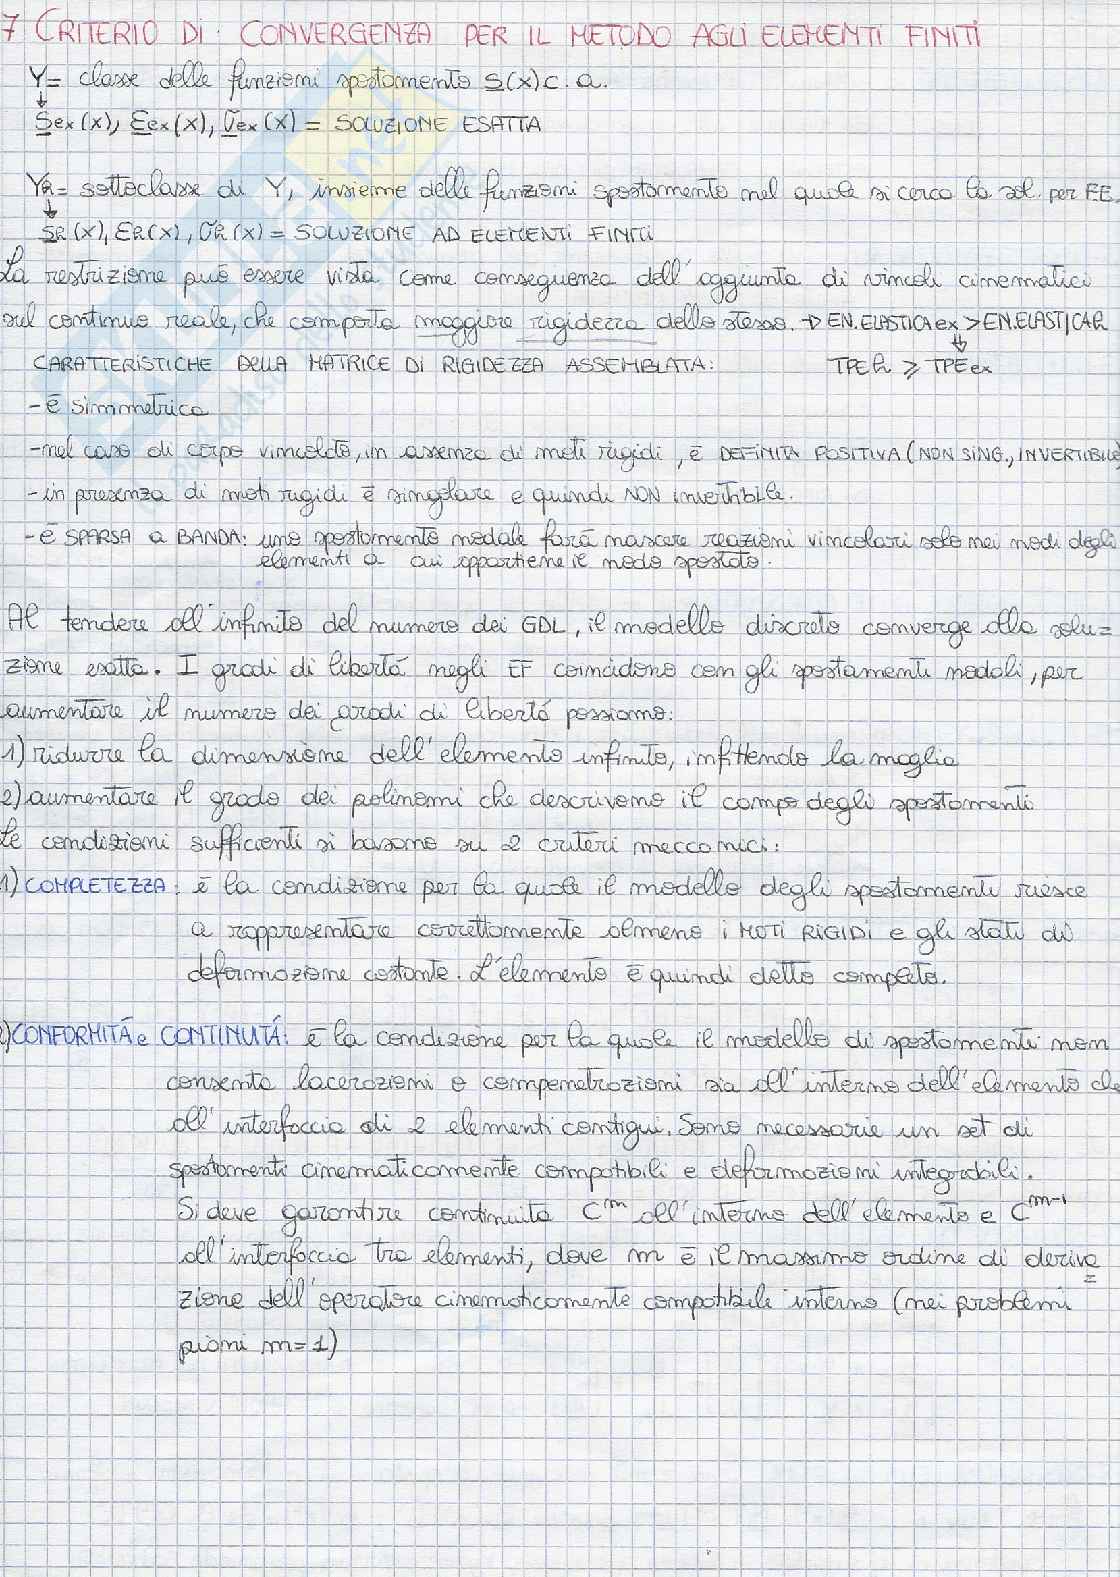 7 CRITERIO DI CONVERGENZA PER IL METODO AGLI ELEMENTI FINITI
Y = classe delle funzioni spostamento s(x) c.a.
↓
Sex(x), Eex(x), σex(x) = SOLUZIONE ESATTA
Yh = sottoclasse di Y, insieme delle funzioni spostamento nel quale si cerca la sol. per FE.
↓
Sh(x), Eh(x), σh(x) = SOLUZIONE AD ELEMENTI FINITI
La restrizione può essere vista come conseguenza dell'aggiunta di vincoli cinematici
sul continuo reale, che comporta maggiore rigidezza dello stesso. → EN.ELASTICA ex > EN.ELASTICA h
↓
CARATTERISTICHE DELLA MATRICE DI RIGIDEZZA ASSEMBLATA: TPE h ⩾ TPE ex
- è simmetrica
- nel caso di corpo vincolato, in assenza di moti rigidi, è DEFINITA POSITIVA (NON SING., INVERTIBILE)
- in presenza di moti rigidi è singolare e quindi NON invertibile.
- è SPARSA a BANDA: uno spostamento nodale farà nascere reazioni vincolari solo nei nodi degli
elementi a cui appartiene il nodo spostato.
Al tendere all'infinito del numero dei GDL, il modello discreto converge alla solu=
zione esatta. I gradi di libertà negli EF coincidono con gli spostamenti nodali, per
aumentare il numero dei gradi di libertà possiamo:
1) ridurre la dimensione dell'elemento infinito, infittendo la maglia
2) aumentare il grado dei polinomi che descrivono il campo degli spostamenti
Le condizioni sufficienti si basano su 2 criteri meccanici:
1) COMPLETEZZA: è la condizione per la quale il modello degli spostamenti riesce
a rappresentare correttamente almeno i MOTI RIGIDI e gli stati di
deformazione costante. L'elemento è quindi detto completo.
2) CONFORMITÀ e CONTINUITÀ: è la condizione per la quale il modello di spostamenti non
consenta lacerazioni o compenetrazioni sia all'interno dell'elemento che
all'interfaccia di 2 elementi contigui. Sono necessarie un set di
spostamenti cinematicamente compatibili e deformazioni integrabili.
Si deve garantire continuità C^m all'interno dell'elemento e C^m-1
all'interfaccia tra elementi, dove m è il massimo ordine di deriva
=
zione dell'operatore cinematicamente compatibile interno (nei problemi
piani m=1)